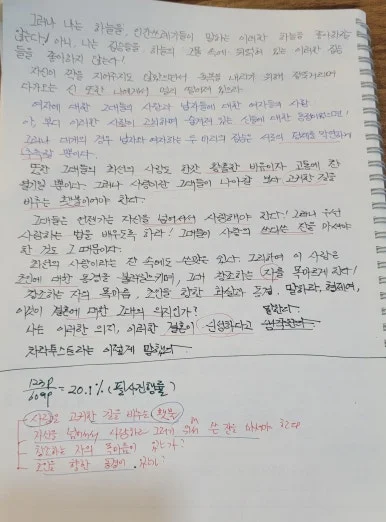 그러나 나는 하늘을, 인간쓰레기들이 말하는 이러한 하늘을 좋아하지
않는다! 아니, 나는 짐승들을, 하늘의 그물 속에 휘감겨 있는 이러한 짐승
들을 좋아하지 않는다!
자신이 짝을 지어주지도 않았으면서 축복을 내리기 위해 절뚝거리며
다가오는 신 또한 나에게서 멀리 떨어져 있으라.
여자에 대한 그대들의 사랑과 남자들에 대한 여자들의 사랑
아, 부디 이러한 사랑이 고뇌하며 숨겨져 있는 신들에 대한 동정이었으면!
그러나 대개의 경우 남자와 여자라는 두 마리의 짐승은 서로의 상대를
뿐이다.
또한 그대들의 최선의 사랑도 한갓 황홀한 비유이자 고통에 찬
열기일 뿐이다. 그러나 사랑이란 그대들이 나아갈 보다 고귀한 길을
비추는 횃불이어야 한다.
그대들은 언젠가는 자신을 넘어서서 사랑해야 한다! 그러니 우선
사랑하는 법을 배우도록 하라! 그대들이 사랑의 쓰디쓴 잔을 마셔야
한 것도 그 때문이다.
최선의 사랑이라는 잔 속에도 쓴맛은 있다. 그리하여 이 사랑은
초인에 대한 동경을 불러일으키며, 그대 창조하는 자를 목마르게 한다!
창조하는 자의 목마름, 초인을 향한 화살과 동경, 말하라, 형제여,
이것이 결혼에 대한 그대의 의지인가?
나는 이러한 의지, 이러한 결혼이 신성하다고 말한다.
차라투스트라는 이렇게 말했다.
123p/609p = 20.1% (필사진행률)
사랑은 고귀한 길을 비추는 횃불
자신을 넘어서서 사랑하고 그러기 위해 쓴 잔을 마셔야 한다
창조하는 자의 목마름이 있는가?
초인을 향한 동경이 있는가?